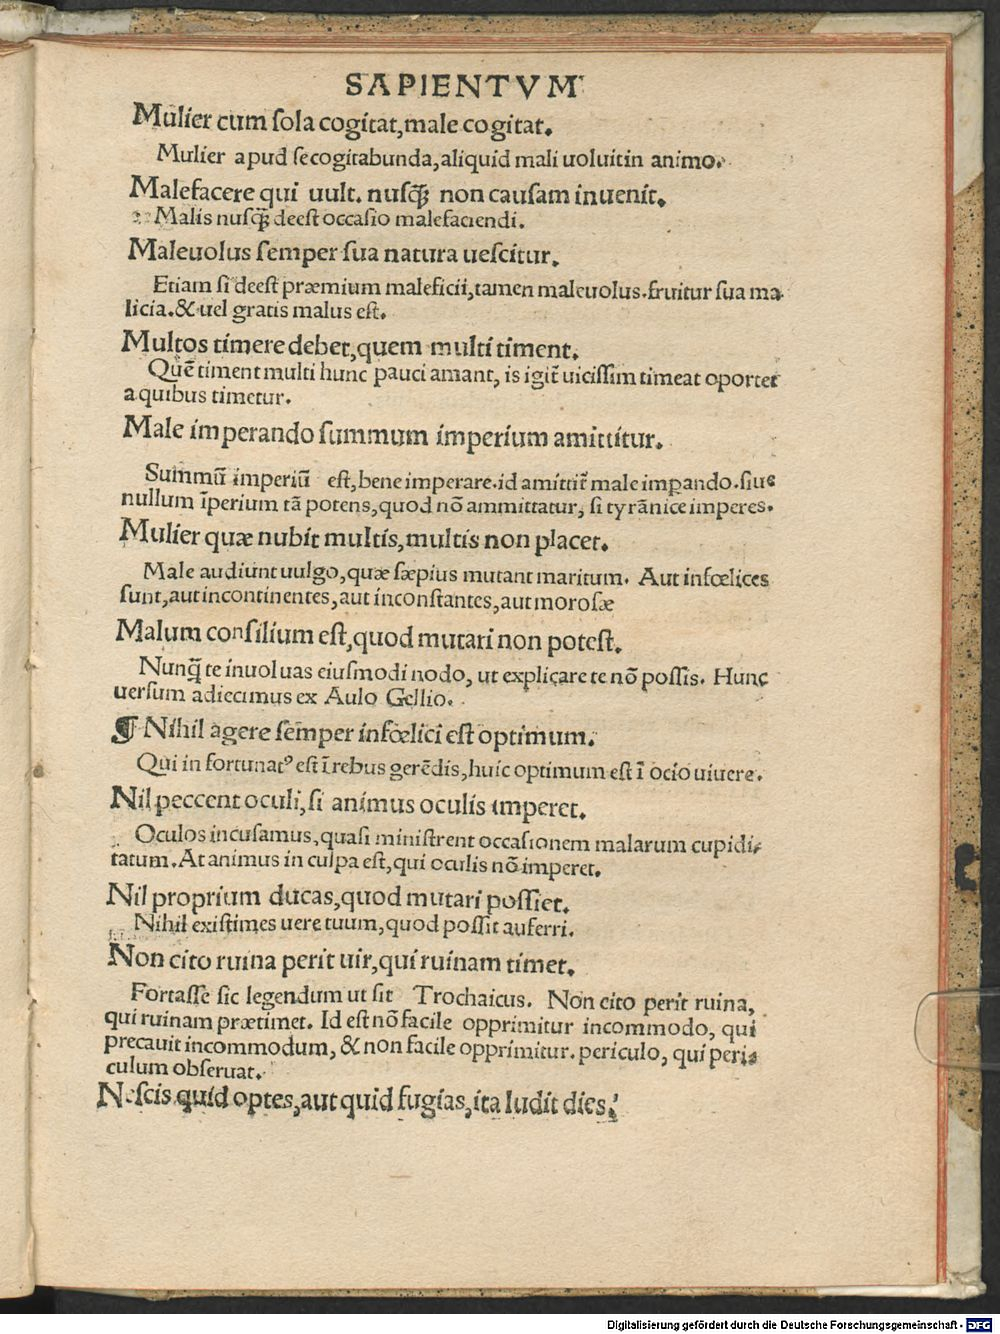 SAPIENTVM
Mulier cum sola cogitat, male cogitat.
Mulier apud se cogitabunda, aliquid mali uoluit in animo.
Malefacere qui uult. nusꝗ̃ non causam inuenit.
Malis nusꝗ̃ deest occasio malefaciendi.
Maleuolus semper sua natura uescitur.
Etiam si deest præmium maleficii, tamen maleuolus. fruitur sua ma
licia. & uel gratis malus est.
Multos timere debet, quem multi timent.
Quẽ timent multi hunc pauci amant, is igit̃ uicissim timeat oportet
a quibus timetur.
Male imperando summum imperium amittitur.
Summũ imperiũ est, bene imperare. id amittit̃ male imꝑando. siue
nullum ĩperium tã potens, quod nõ ammittatur, si tyrãnice imperes.
Mulier quæ nubit multis, multis non placet.
Male audiunt uulgo, quæ sæpius mutant maritum. Aut infœlices
sunt, aut incontinentes, aut inconstantes, aut morosæ
Malum consilium est, quod mutari non potest.
Nunꝗ̃ te inuoluas eiusmodi nodo, ut explicare te nõ possis. Hunc
uersum adiecimus ex Aulo Gellio.
¶ Nihil agere semper infœlici est optimum.
Qui in fortunatꝰ est ĩ rebus gerẽdis, huic optimum est ĩ ocio uiuere.
Nil peccent oculi, si animus oculis imperet.
Oculos incusamus, quasi ministrent occasionem malarum cupidi-
tatum. At animus in culpa est, qui oculis nõ imperet.
Nil proprium ducas, quod mutari possiet.
Nihil existimes uere tuum, quod possit auferri.
Non cito ruina perit uir, qui ruinam timet.
Fortasse sic legendum ut sit Trochaicus. Non cito perit ruina,
qui ruinam prætimet. Id est nõ facile opprimitur incommodo, qui
precauit incommodum, & non facile opprimitur. periculo, qui peri-
culum obseruat.
Nescis quid optes, aut quid fugias, ita ludit dies.
Digitalisierung gefördert durch die Deutsche Forschungsgemeinschaft - DFG